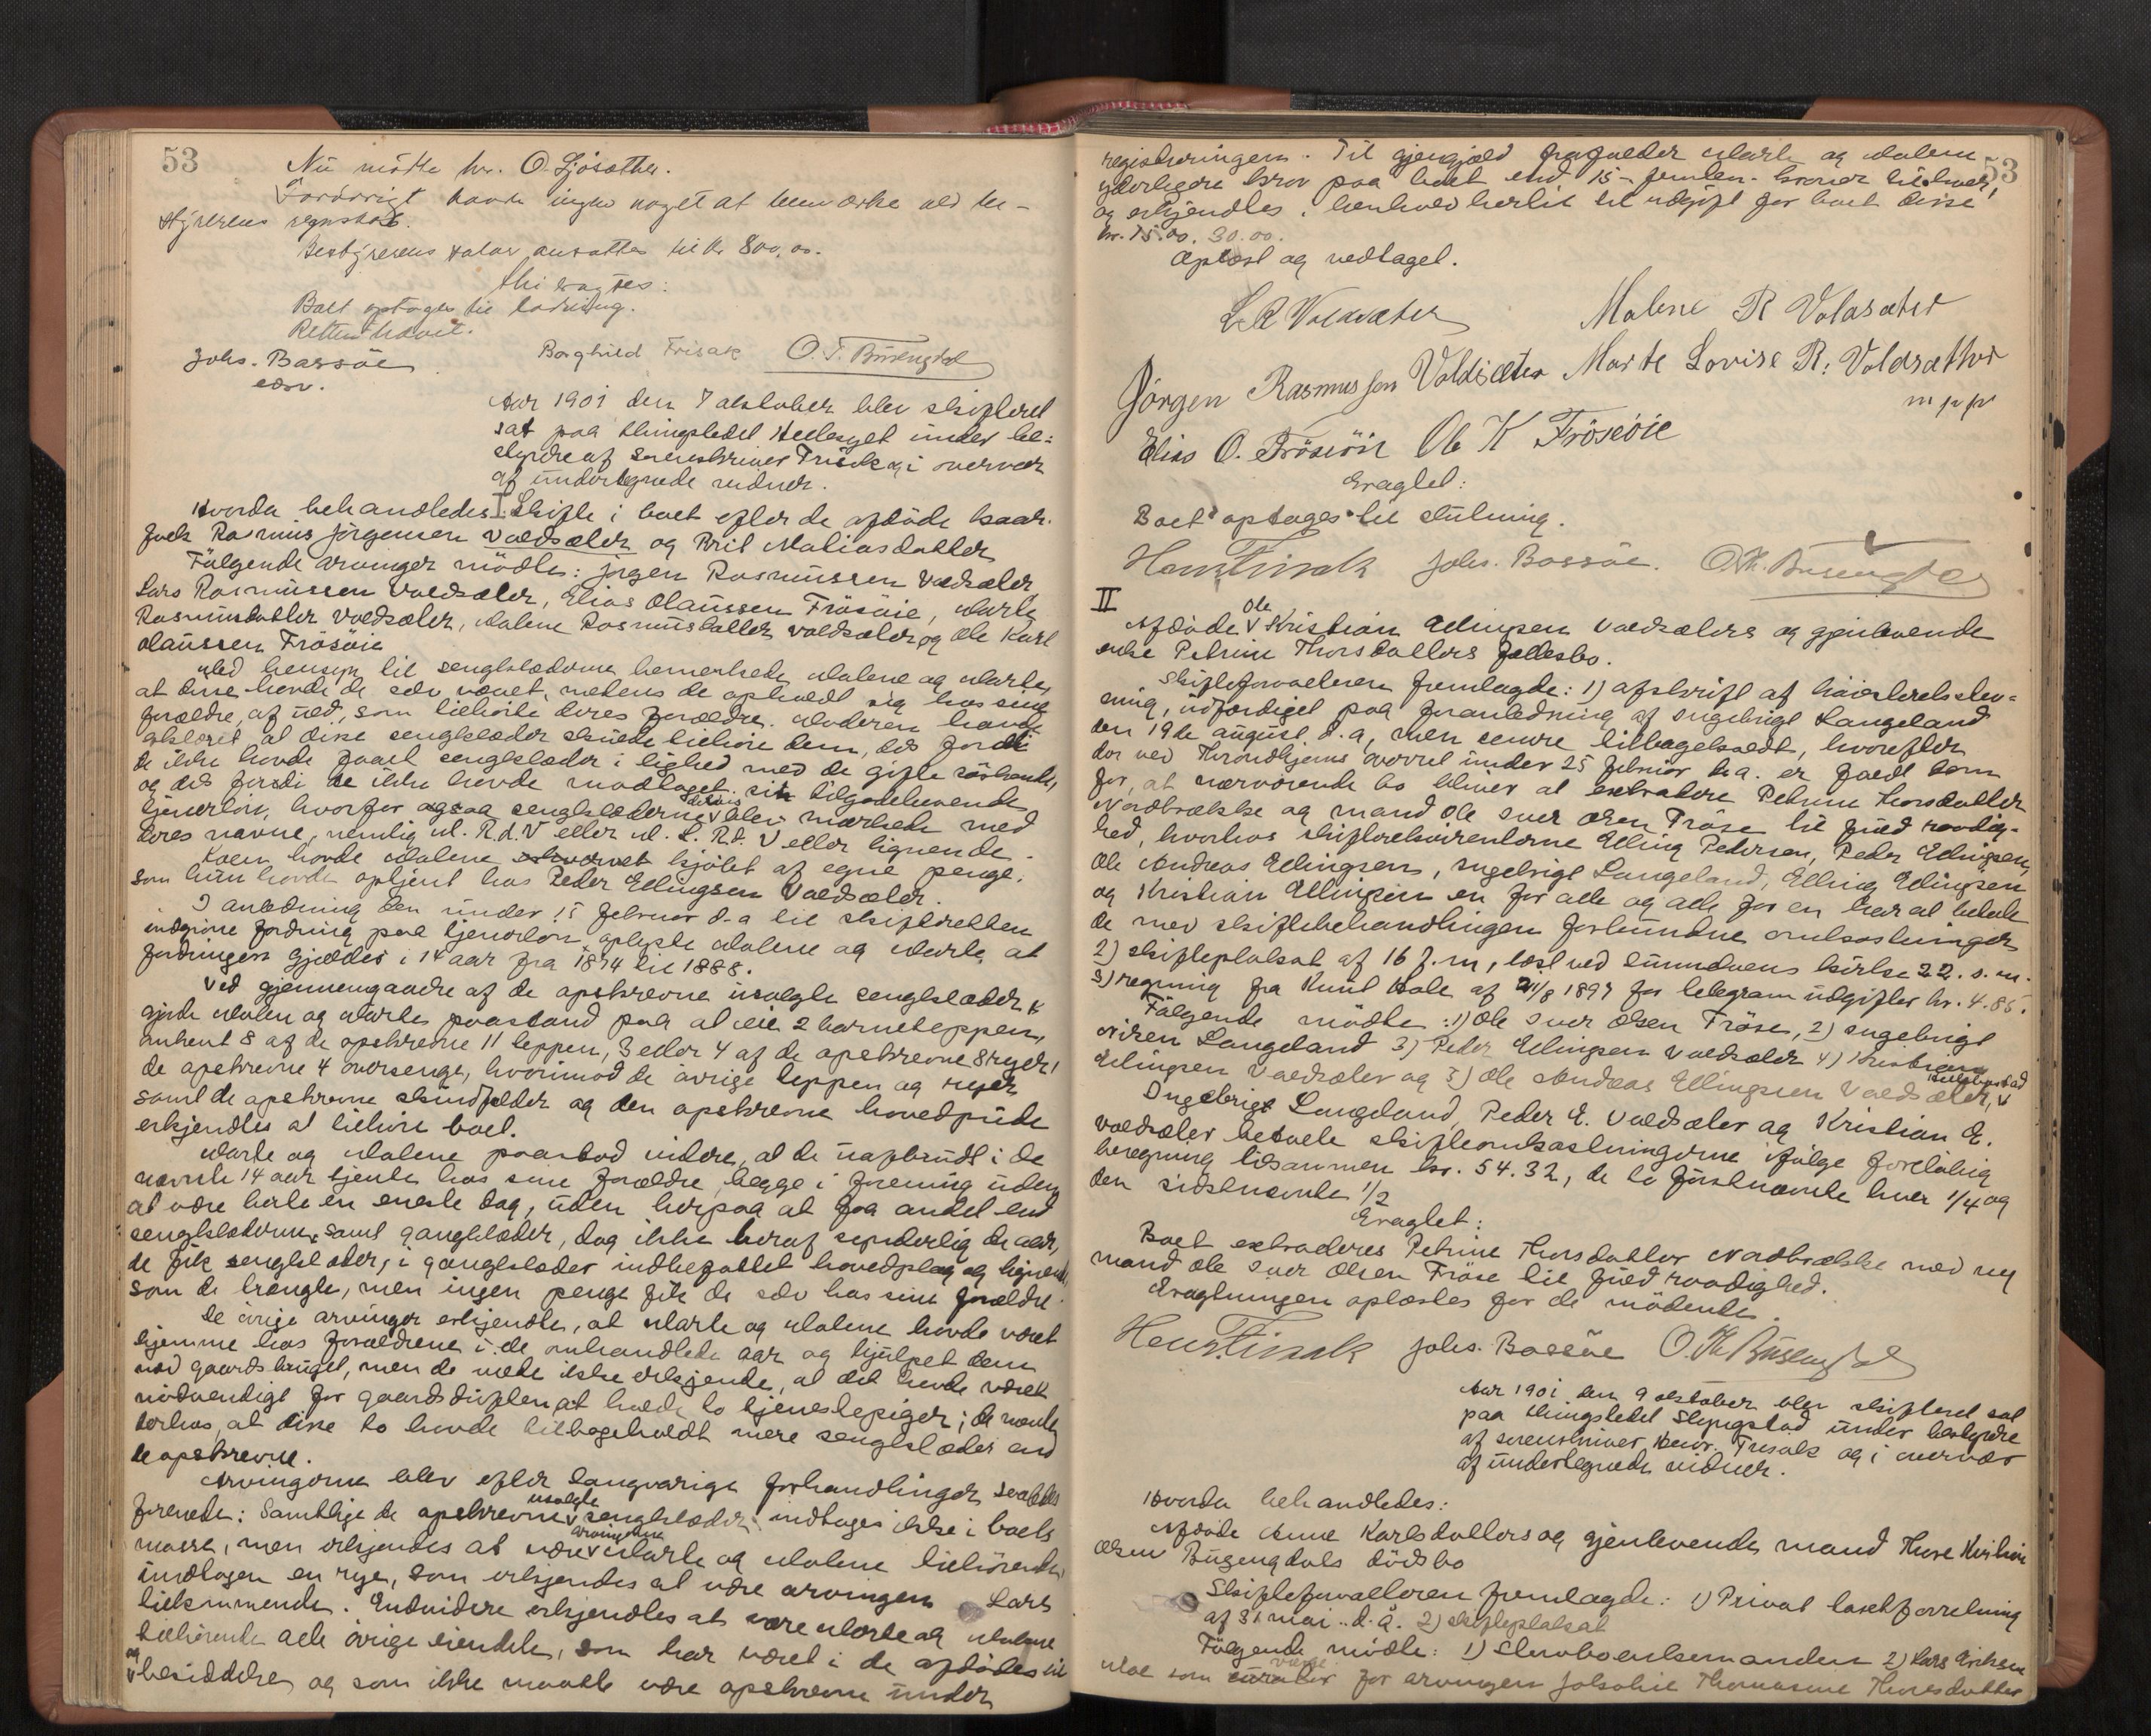 53
Nu mötte hr. O. Ljösether.
Forövrigt havde ingen noget at bemærke ved be-
styrerens regnskab.
Bestyrerens salær ansattes til kr 800,00.
thi eragtes:
Boet optages til
Retten hævet.
Johs. Bassöe
Borghild Frisak O. T. Busengdal
edsv.
Aar 1901 den 7 oktober blev skifteret
sat paa thingstedet Hellesyet under be-
styrelse af sorenskriver Frisak og i overvær
af undertegnede vidner.
Hvorda behandledes: I. Skifte i boet efter de afdöde kaar-
folk Rasmus Jörgensen Valdsæter og Brit Mathiasdatter
Fölgende arvinger mödte: Jörgen Rasmussen Valdsæter
Lars Rasmussen Valdsæter, Elias Olaussen Frösöie, Marte
Rasmusdatter Valdsæter, Malene Rasmusdatter Valdsæter og Ole Karl
Olaussen Frösöie
Med hensyn til sengklæderne bemerkede Malene og Marte,
at disse havde de selv vævet, medens de opholdt sig hos sine
forældre, af uld, som tilhörte deres forældre. Moderen havde
erklæret at disse sengklæder skulde tilhöre dem, dels fordi
de ikke havde faaet sengklæder i lighed med de gifte söskende,
og dels fordi de ikke havde modtaget sin tilgodehavende
tjenerlön, hvorfor ogsaa sengklæderne delvis blev mærkede med
deres navne, nemlig M. R. d. V eller M. L. R. d. V eller lignende.
Koen havde Malene erhvervet kjöbt af egne penge,
som hun havde optjent hos Peder Ellingsen Valdsæter.
I anledning den under 15 februar d. a til skifteretten
indgivne fordring paa tjenerlön oplyste Malene og Marte at
fordringen gjælder i 14 aar fra 1874 til 1888.
Ved gjennemgaaelse af de opskrevne usolgte sengklæder
gjorde Malene og Marte paastand paa at eie 2 barneteppen,
omtrent 8 af de opskrevne 11 teppen, 3 eller 4 af de opskrevne 8 ryer,
de opskrevne 4 oversenge, hvorimod de övrige teppen og ryer
samt de opskrevne skindfelder og den opskrevne hovedpude
erkjendtes at tilhöre boet.
Marte og Malene paastod videre, at de uafbrudt i de
nævnte 14 aar tjente hos sine forældre, begge i forening uden
at være borte en eneste dag, uden herpaa at faa andet end
sengklæderne, samt gangklæder, dog ikke heraf synderlig de aar,
de fik sengklæder, i gangklæder indbefattet hovedplag og lignende,
som de trængte, men ingen penge fik de selv hos sine forældre.
De övrige arvinger erkjendte, at Marte og Malene havde været
hjemme hos forældrene i de omhandlede aar og hjulpet dem
med gaardsbruget, men de vilde ikke erkjende, at det havde været
nödvendigt for gaardsdriften at holde to tjenestepiger; de mente
derhos, at disse to havde tilbageholdt mere sengklæder end
de opskrevne.
Arvingerne blev efter langvarige forhandlinger saaledes
forenede: Samtlige de opskrevne usolgte sengklæder indtages ikke i boets
masse, men erkjendes at være arvingerne Marte og Malene tilhörende,
undtagen en rye, som erkjendes at være arvingen Lars
tilkommende. Endvidere erkjendtes at være Marte og Malene
tilhörende alle övrige eiendele, som har været i de afdödes
og besiddelse og som ikke maatte være opskrevne under
53
registreringen. Til gjengjæld frafalder Marte og Malene
yderligere krav paa boet end 15 - femten - kroner til hver,
og erkjendtes i henhold hertil til udgift for boet disse
kr. 15.00. 30.00.
Oplæst og vedtaget.
L R Valdsæter Malene R Valdsæter
Jörgen Rasmussen Valdsæter Marte Lovise R. Valdsæther
m p p
Elias O. Frösöie Ole K Frösöie
Eragtet:
Boet optages til slutning.
Henr Frisak Johs. Bassöe. O. Th. Busengdal
II
Afdöde Ole Kristian Ellingsen Valdsæters og gjenlevende
enke Petrine Thorsdatters fællesbo.
Skifteforvalteren fremlagde: 1) afskrift af höiesteretsstev-
ning, udfærdiget paa foranledning af Ingebrigt Langeland
den 19de august d. a, men senere tilbagekaldt, hvorefter
der ved Throndhjems overret under 25 februar d. a. er faldt dom
for, at nærværende bo bliver at extradere Petrine Thorsdatter
Nordbrække og mand Ole Iver Olsen Fröse til fuld raadig-
hed, hvorhos skifterekvirenterne Elling Petersen, Peder Ellingsen,
Ole Andreas Ellingsen, Ingebrigt Langeland, Elling Ellingsen
og Kristian Ellingsen en for alle og alle for en har at betale
de med skiftebehandlingen forbundne omkostninger
2) skifteplakat af 16 f. m, læst ved Sunndvens kirke 22. s. m.
3) regning fra Knut Hole af 21/8 1897 for telegram udgifter kr. 4.85.
Fölgende mödte: 1) Ole Iver Olsen Fröse, 2) Ingebrigt
Nilsen Langeland 3) Peder Ellingsen Valdsæter 4) Kristian
Ellingsen Valdsæter og 5) Ole Andreas Ellingsen Valdsæter,
Ingebrigt Langeland, Peder E. Valdsæter og Kristian E.
Valdsæter betalte skifteomkostningerne ifölge foreløbig
beregning tilsammen kr. 54.32, de to förstnævnte hver 1/4 og
den sidstnævnte 1/2
Eragtet:
Boet extraderes Petrine Thorsdatter Nordbrække med ny
mand Ole Iver Olsen Fröse til fuld raadighed.
Eragtningen oplæstes for de mödende.
Henr. Frisak Johs. Bassöe O. Th Busengdal
Aar 1901 den 9 oktober blev skifteret sat
paa thingstedet Slyngstad under bestyrelse
af sorenskriver Henr. Frisak og i overvær
af undertegnede vidner.
Hvorda behandledes:
Afdöde Anne Karlsdatters og gjenlevende mand Thore Kristian
Olsen Bugengdals dödsbo
Skifteforvalteren fremlagde: 1) Privat laset forretning
af 31 mai d. å. 2) skifteplakat
Fölgende mödte: 1) Stervboenkemanden 2) Lars Eriksen
Moe som curator værge for arvingen Thomasine Thoresdatter